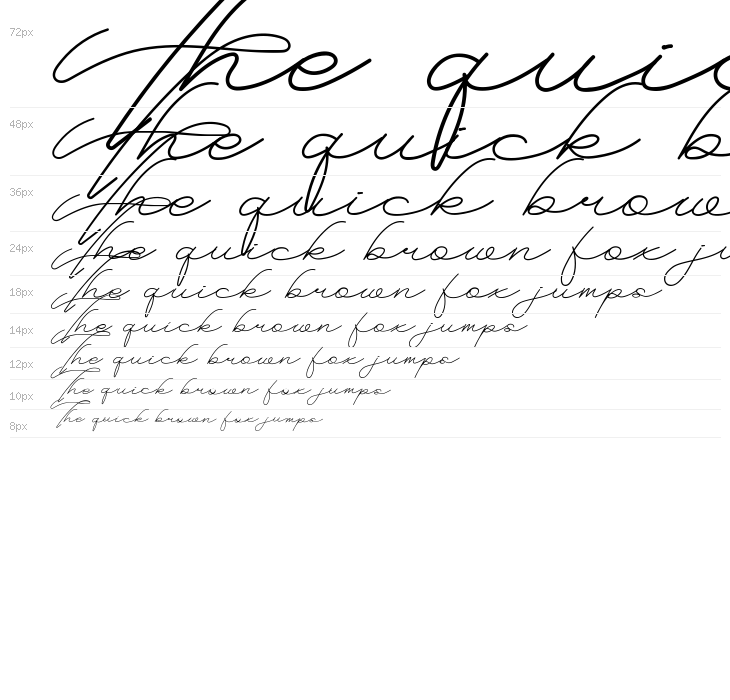 72px The quic
48px The quick b
36px The quick brow
24px The quick brown fox ju
18px The quick brown fox jumps
14px The quick brown fox jumps
12px The quick brown fox jumps
10px The quick brown fox jumps
8px The quick brown fox jumps